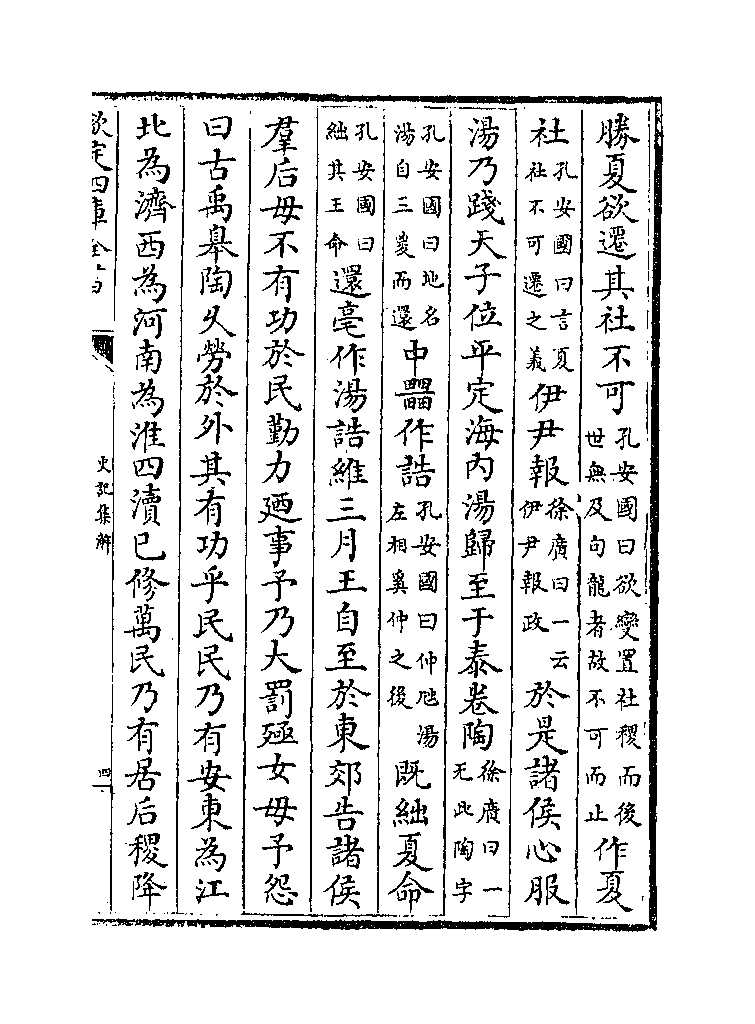 勝夏欲遷其社不可孔安國曰欲變置社稷而後世無及句龍者故不可而止作夏
社孔安國曰言夏社不可遷之義伊尹報徐廣曰一云伊尹報政於是諸侯心服
湯乃踐天子位平定海內湯歸至于泰卷陶徐廣曰一无此陶字
孔安國曰地名湯自三㚇而還中𤳹作誥孔安國曰仲虺湯左相奚仲之後既絀夏命
孔安國曰絀其王命還亳作湯誥維三月王自至於東郊告諸侯
羣后毋不有功於民勤力廼事予乃大罰殛女毋予怨
曰古禹臯陶久勞於外其有功乎民民乃有安東為江
北為濟西為河南為淮四瀆已修萬民乃有居后稷降
欽定四庫全書
史記集解
四